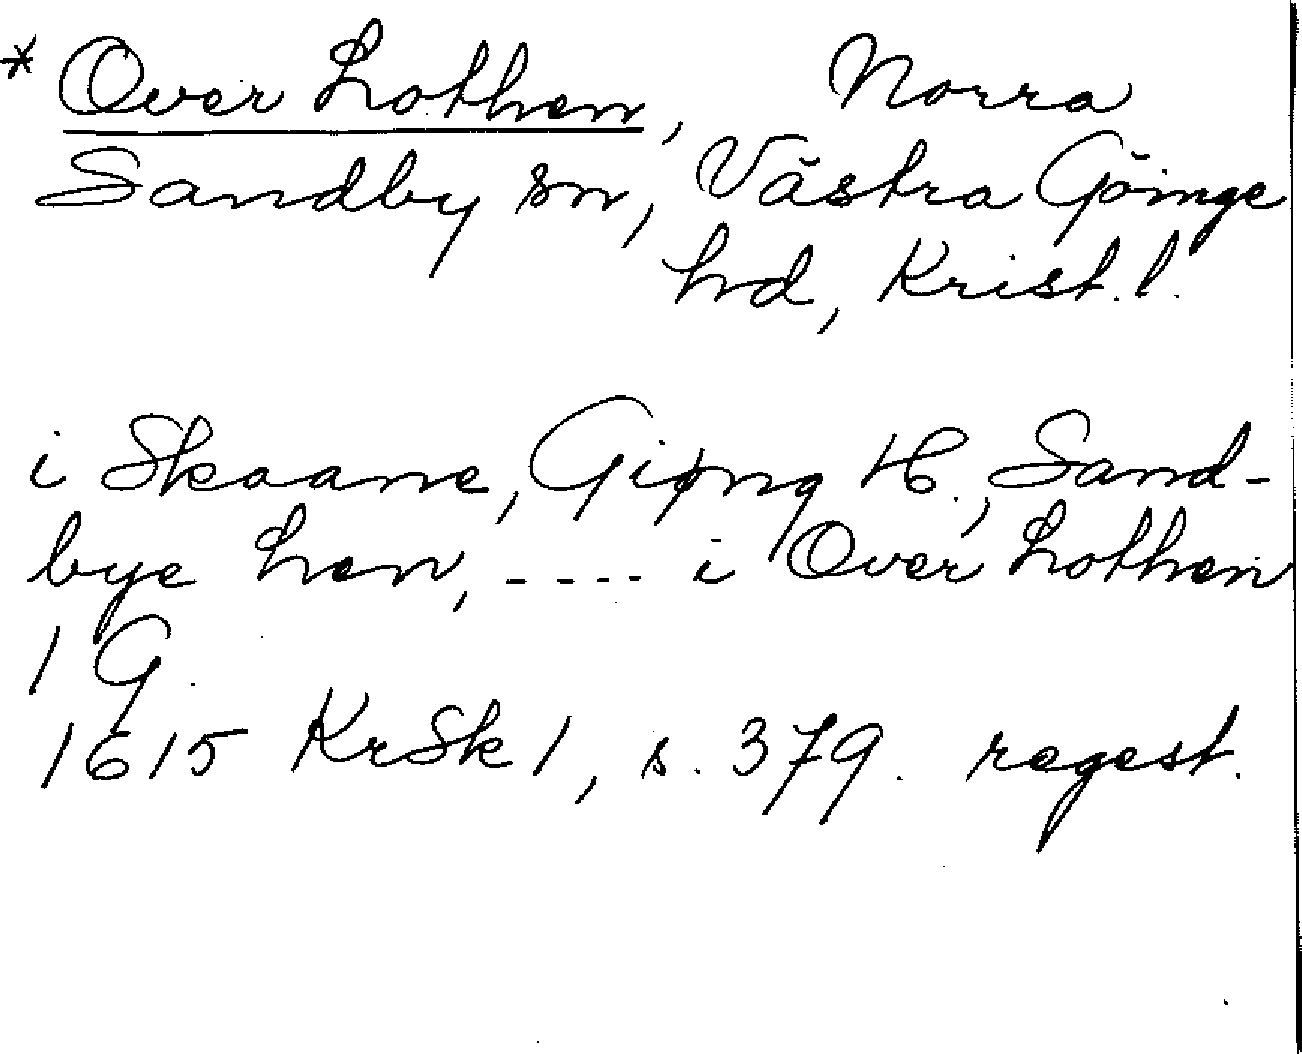 * Over Lothen, Norra
Sandby sn, Västra Göinge
hd, Krist. l.
i Skaane, Giøng H., Sand-
bye Len, ---- i Over Lothen
1 G.
1615 KrSk 1, s. 379. regest.